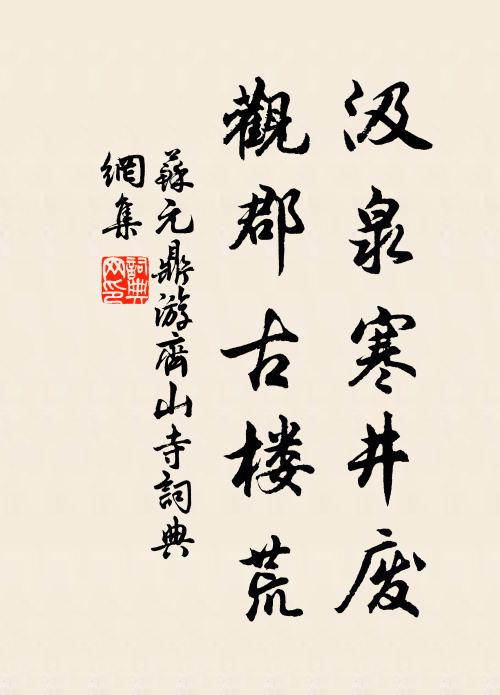 汲泉寒井废
觀郡古楼荒
蘇元鼎游齊山寺詞典
網集
詞典網印